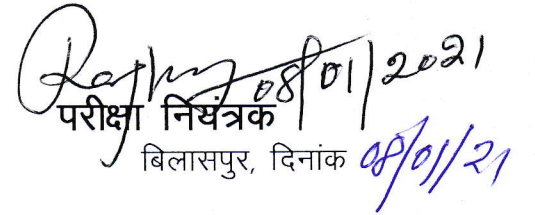 08/01/2021
परीक्षा नियंत्रक
बिलासपुर, दिनांक 08/01/21